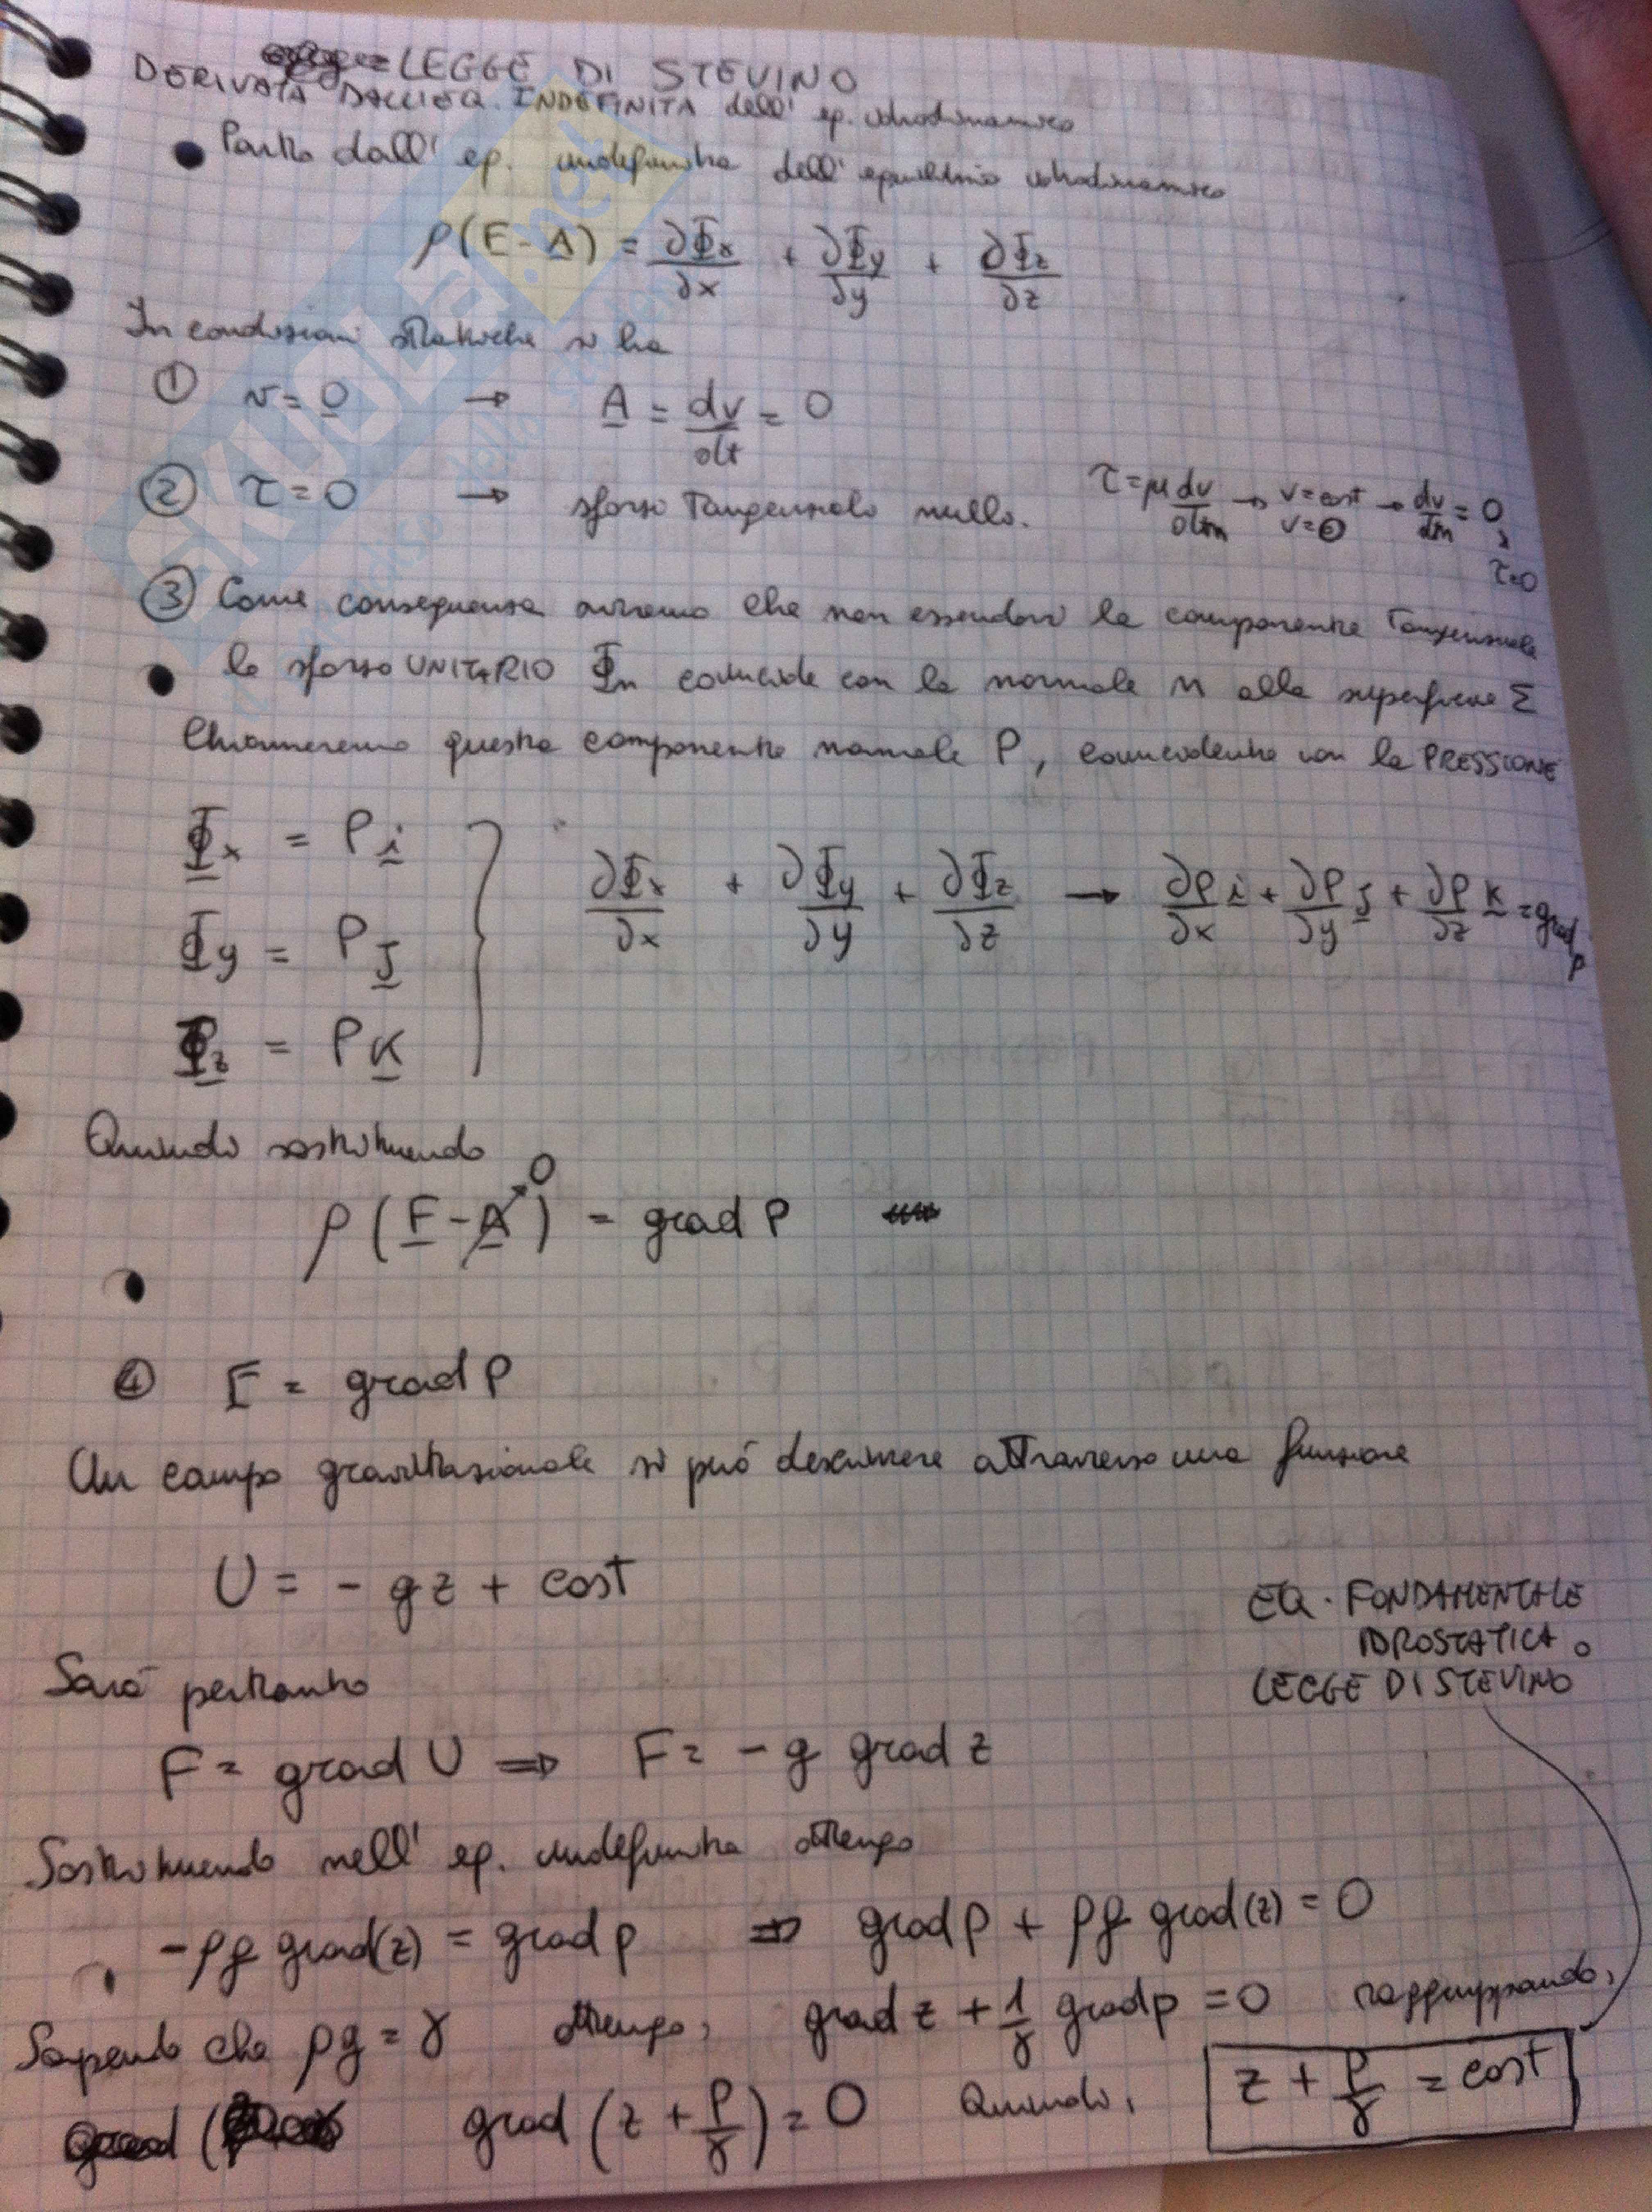 LEGGE DI STEVINO
DERIVATA DALL'EQ. INDEFINITA dell' eq. idrodinamico
• Parto dall' eq. indefinita dell' equilibrio idrodinamico
ρ(F - A) = ∂Φx/∂x + ∂Φy/∂y + ∂Φz/∂z
In condizioni statiche si ha
① v = 0 → A = dv/dt = 0
② τ = 0 → sforzo Tangenziale nullo. τ = μ dv/dn → v = cost v = 0 → dv/dn = 0, τ=0
③ Come conseguenza avremo che non essendovi la componente Tangenziale
• lo sforzo UNITARIO Φn coincide con la normale n alla superficie Σ
Chiameremo questa componente normale P, coincidente con la PRESSIONE
Φx = P i
Φy = P J
Φz = P K
∂Φx/∂x + ∂Φy/∂y + ∂Φz/∂z → ∂p/∂x i + ∂p/∂y J + ∂p/∂z K = grad p
Quindi sostituendo
ρ(F - A) = grad P
0
④ F = grad P
Un campo gravitazionale si può descrivere attraverso una funzione
U = - gz + cost
EQ. FONDAMENTALE
IDROSTATICA o
LEGGE DI STEVINO
Sarà pertanto
F = grad U ⇒ F = - g grad z
Sostituendo nell' eq. indefinita ottengo
-ρg grad(z) = grad p ⇒ grad p + ρg grad(z) = 0
Sapendo che ρg = γ ottengo, grad z + 1/γ grad p = 0 raggruppando,
grad (z + P/γ) = 0 Quindi, z + P/γ = cost
SKUOLA.net